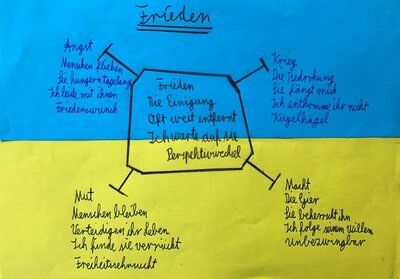 Frieden
Angst
Menschen fliehen
Sie hungern tagelang
Ich leide mit ihnen
Friedenswunsch
Krieg
Die Bedrohung
Sie fängt mich
Ich entkomme ihr nicht
Kugelhagel
Frieden
Die Einigung
Oft weit entfernt
Ich warte auf sie
Perspektivwechsel
Mut
Menschen bleiben
Verteidigen ihr Leben
Ich finde sie verrückt
Freiheitssehnsucht
Macht
Die Gier
Sie beherrscht ihn
Ich folge seinem Willen
Unbezwingbar